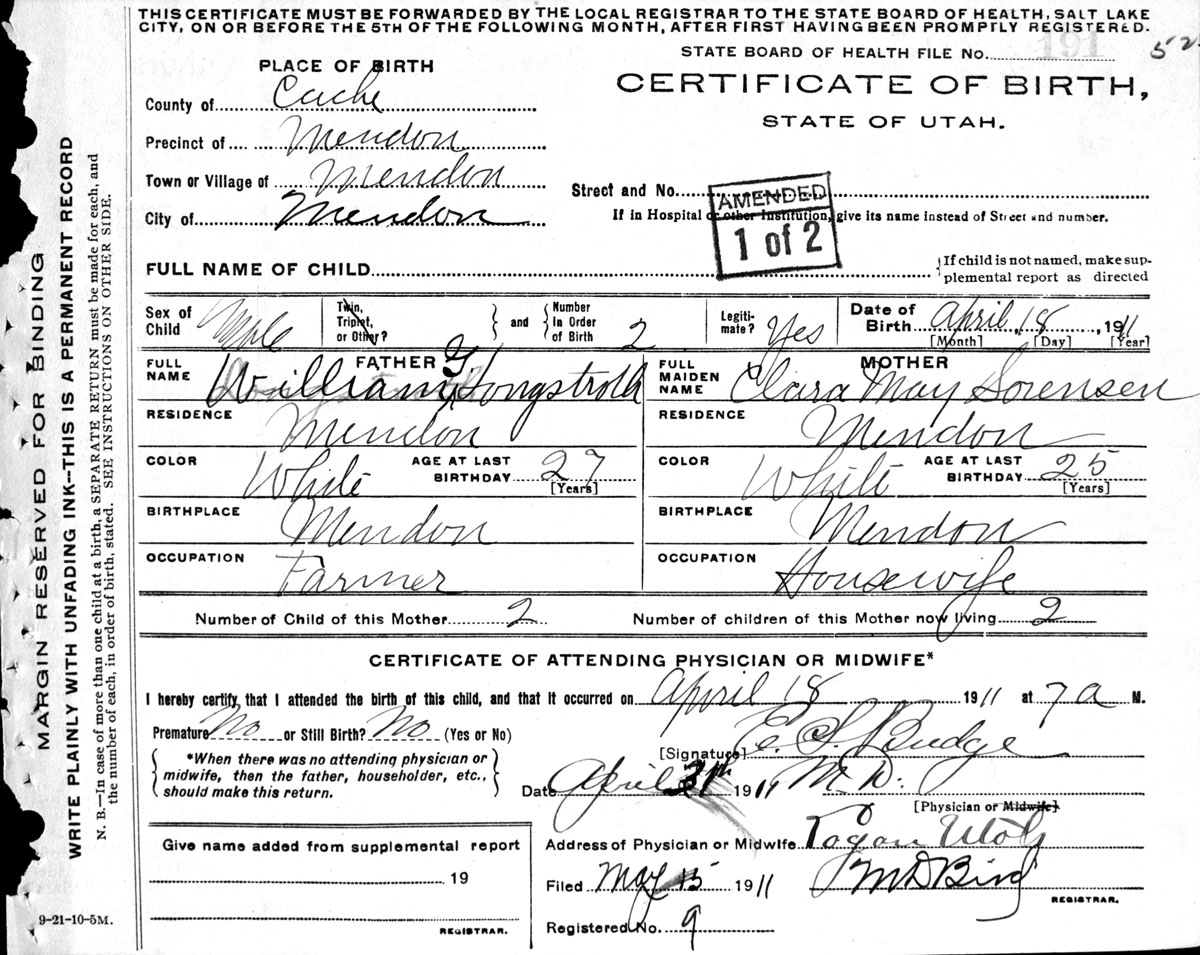 THIS CERTIFICATE MUST BE FORWARDED BY THE LOCAL REGISTRAR TO THE STATE BOARD OF HEALTH, SALT LAKE
CITY, ON OR BEFORE THE 5TH OF THE FOLLOWING MONTH, AFTER FIRST HAVING BEEN PROMPTLY REGISTERED.
STATE BOARD OF HEALTH FILE No. 191 52
PLACE OF BIRTH
CERTIFICATE OF BIRTH,
STATE OF UTAH.
County of Cache
Precinct of Mendon
Town or Village of Mendon
City of Mendon
Street and No.
If in Hospital or other Institution, give its name instead of Street and number.
AMENDED
1 of 2
FULL NAME OF CHILD
If child is not named, make sup-
plemental report as directed
Sex of Child Male Twin, Triplet, or Other? and Number In Order of Birth 2 Legiti-mate? Yes Date of Birth April 18, 1911
[Month] [Day] [Year]
FATHER MOTHER
FULL NAME William G Longstroth FULL MAIDEN NAME Clara May Sorensen
RESIDENCE Mendon RESIDENCE Mendon
COLOR White AGE AT LAST BIRTHDAY 27 [Years] COLOR White AGE AT LAST BIRTHDAY 25 [Years]
BIRTHPLACE Mendon BIRTHPLACE Mendon
OCCUPATION Farmer OCCUPATION Housewife
Number of Child of this Mother 2 Number of children of this Mother now living 2
CERTIFICATE OF ATTENDING PHYSICIAN OR MIDWIFE*
I hereby certify, that I attended the birth of this child, and that it occurred on April 18 1911 at 7 a M.
Premature No or Still Birth? No (Yes or No)
[Signature] E. S. Budge
*When there was no attending physician or
midwife, then the father, householder, etc.,
should make this return.
Date April 1911 M D.
[Physician or Midwife]
Address of Physician or Midwife Logan Utah
Filed May 15 1911 M D Bird
REGISTRAR.
Registered No. 9
Give name added from supplemental report
19
REGISTRAR.
9-21-10-5M.
MARGIN RESERVED FOR BINDING
WRITE PLAINLY WITH UNFADING INK--THIS IS A PERMANENT RECORD
N. B.—In case of more than one child at a birth, a SEPARATE RETURN must be made for each, and
the number of each, in order of birth, stated. SEE INSTRUCTIONS ON OTHER SIDE.